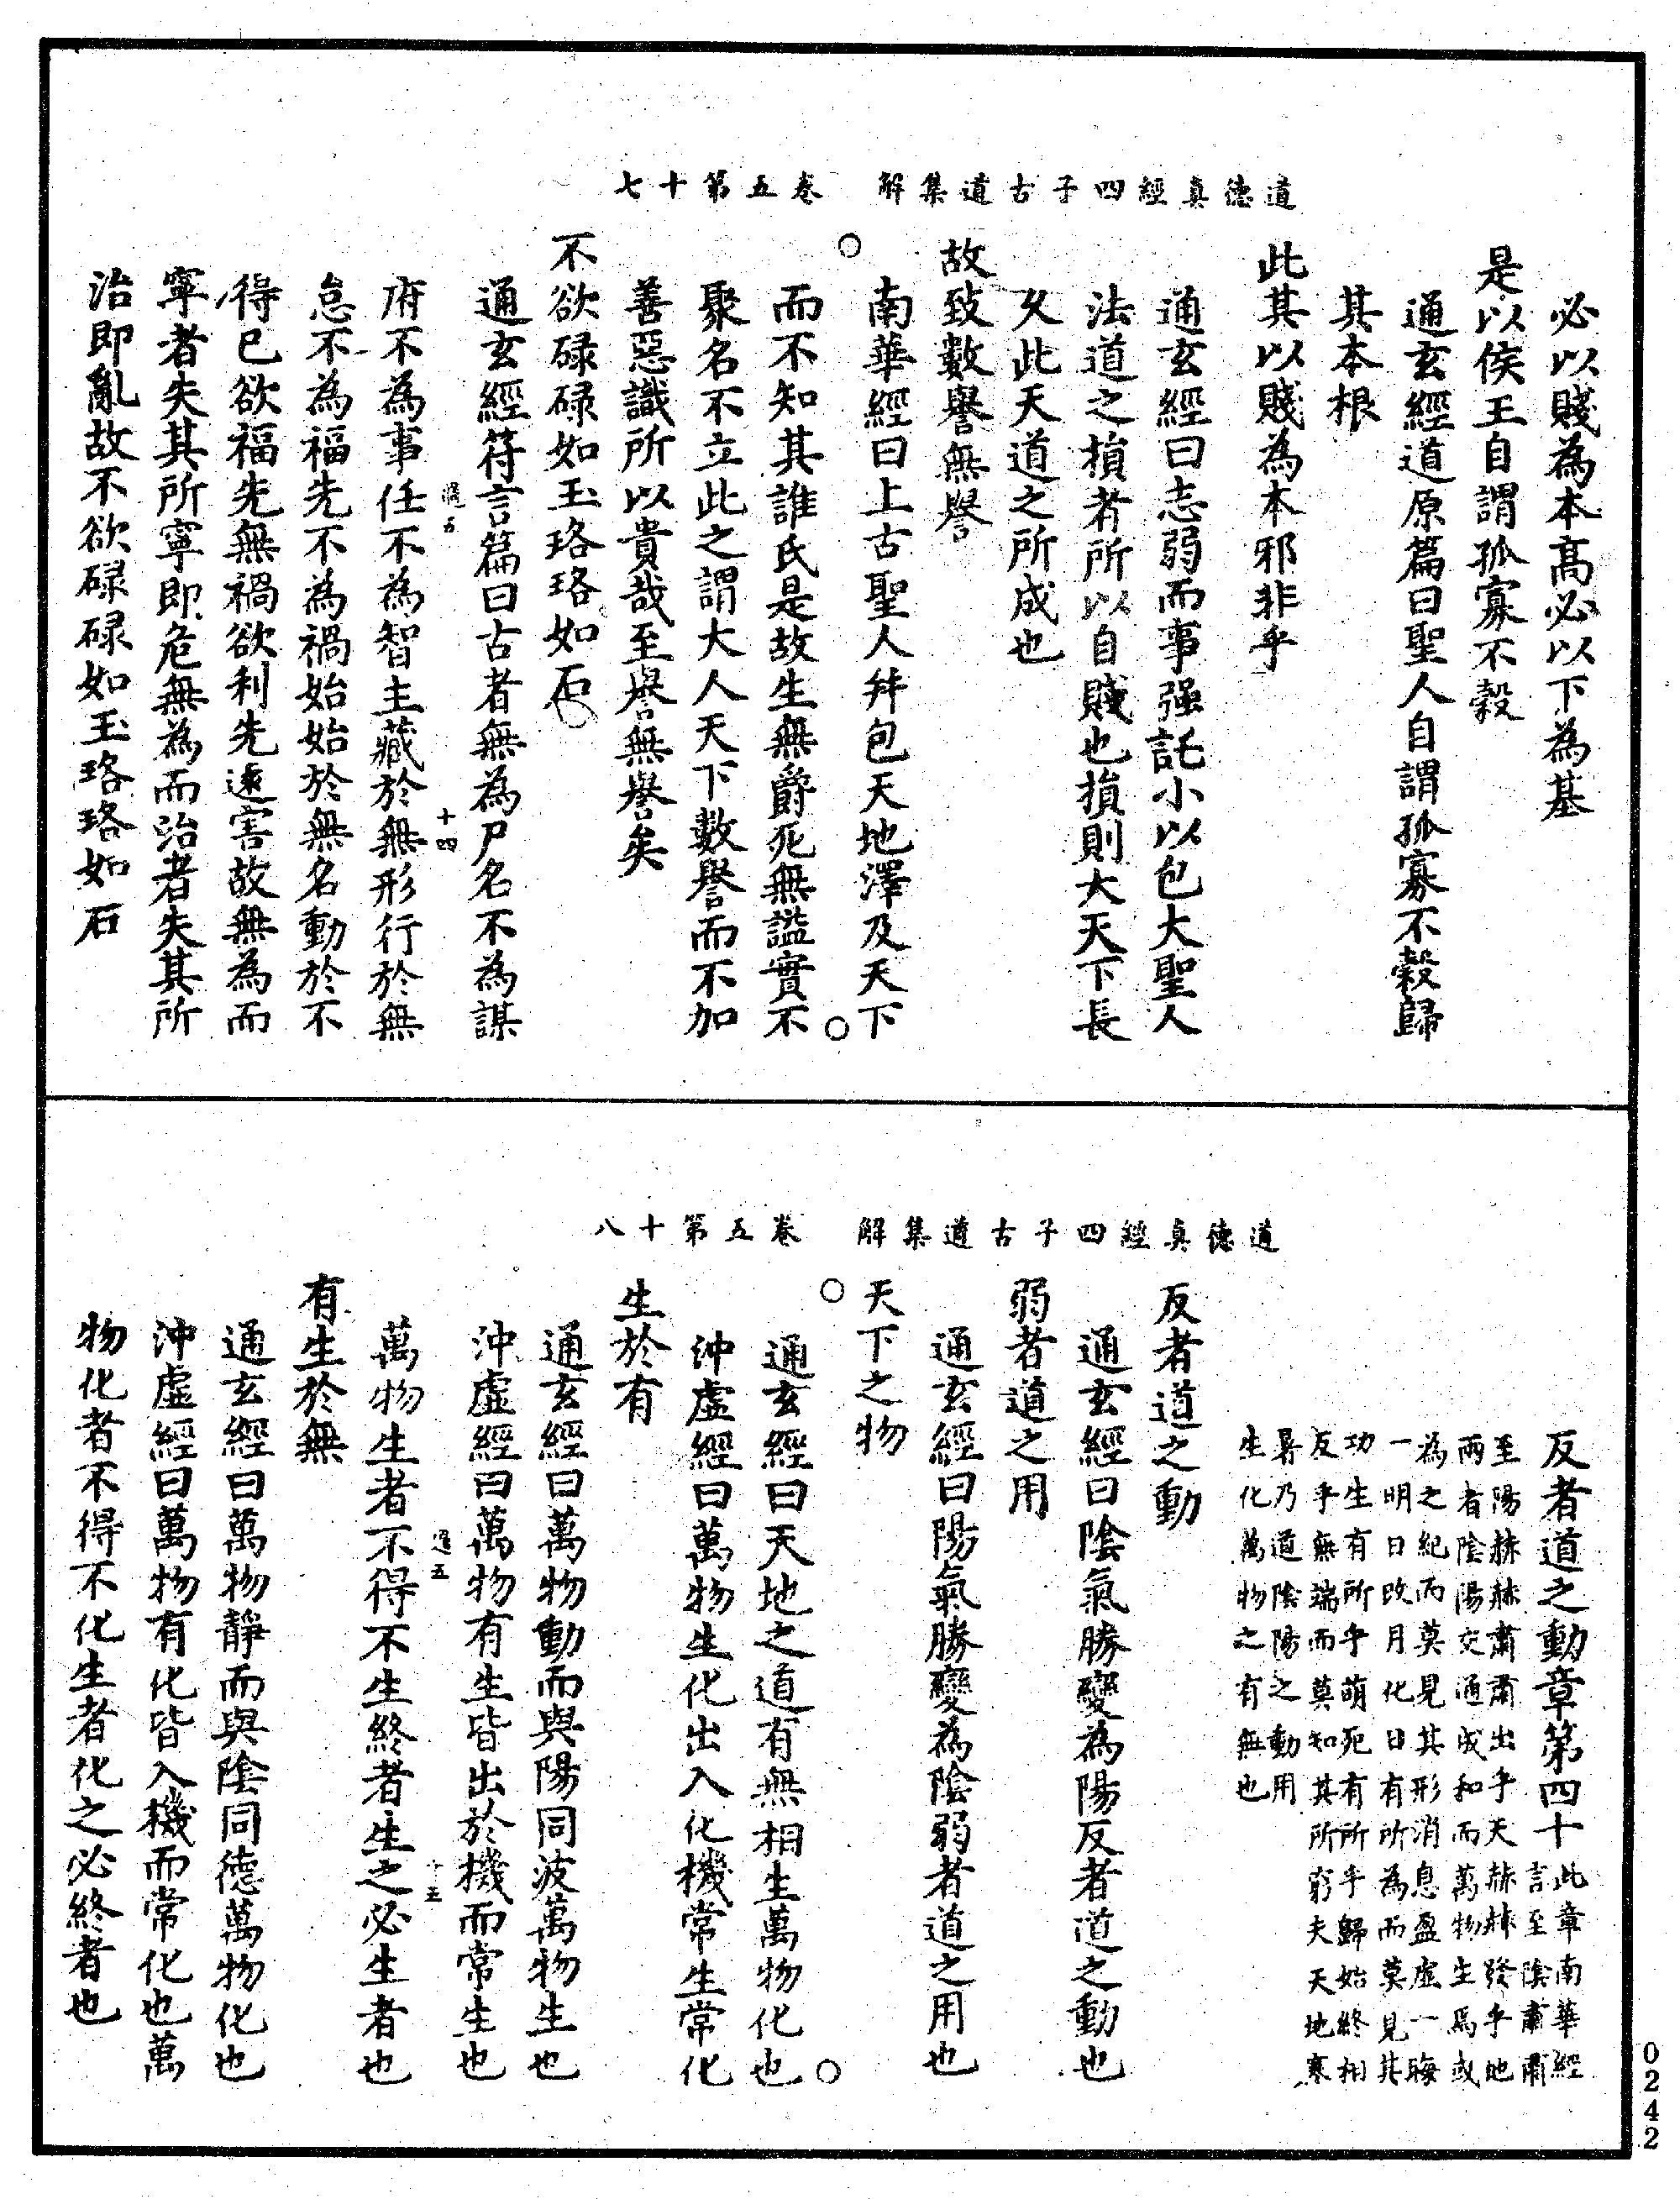 道德真經四子古道集解　卷五第十七
必以賤為本高必以下為基
是以侯王自謂孤寡不穀
通玄經道原篇曰聖人自謂孤寡不穀歸
其本根
此其以賤為本邪非乎
通玄經曰志弱而事强託小以包大聖人
法道之損者所以自賤也損則大天下長
久此天道之所成也
故致數譽無譽
南華經曰上古聖人幷包天地澤及天下
而不知其誰氏是故生無爵死無謚實不
聚名不立此之謂大人天下數譽而不加
善惡識所以貴哉至譽無譽矣
不欲碌碌如玉珞珞如石
通玄經符言篇曰古者無為尸名不為謀
十四
府不為事任不為智主藏於無形行於無
怠不為福先不為禍始始於無名動於不
得已欲福先無禍欲利先遠害故無為而
寧者失其所寧即危無為而治者失其所
治即亂故不欲碌碌如玉珞珞如石
道德真經四子古道集解　卷五第十八
反者道之動章第四十
此章南華經
言至陰肅肅
至陽赫赫肅肅出乎天赫赫發乎地
兩者陰陽交通成和而萬物生焉或
為之紀而莫見其形消息盈虛一晦
一明日改月化日有所為而莫見其
功生有所乎萌死有所乎歸始終相
反乎無端而莫知其所窮夫天地寒
暑乃道陰陽之動用
生化萬物之有無也
反者道之動
通玄經曰陰氣勝變為陽反者道之動也
弱者道之用
通玄經曰陽氣勝變為陰弱者道之用也
天下之物
通玄經曰天地之道有無相生萬物化也
沖虛經曰萬物生化出入化機常生常化
生於有
通玄經曰萬物動而與陽同波萬物生也
沖虛經曰萬物有生皆出於機而常生也
十五
萬物生者不得不生終者生之必生者也
有生於無
通玄經曰萬物靜而與陰同德萬物化也
沖虛經曰萬物有化皆入機而常化也萬
物化者不得不化生者化之必終者也
0242